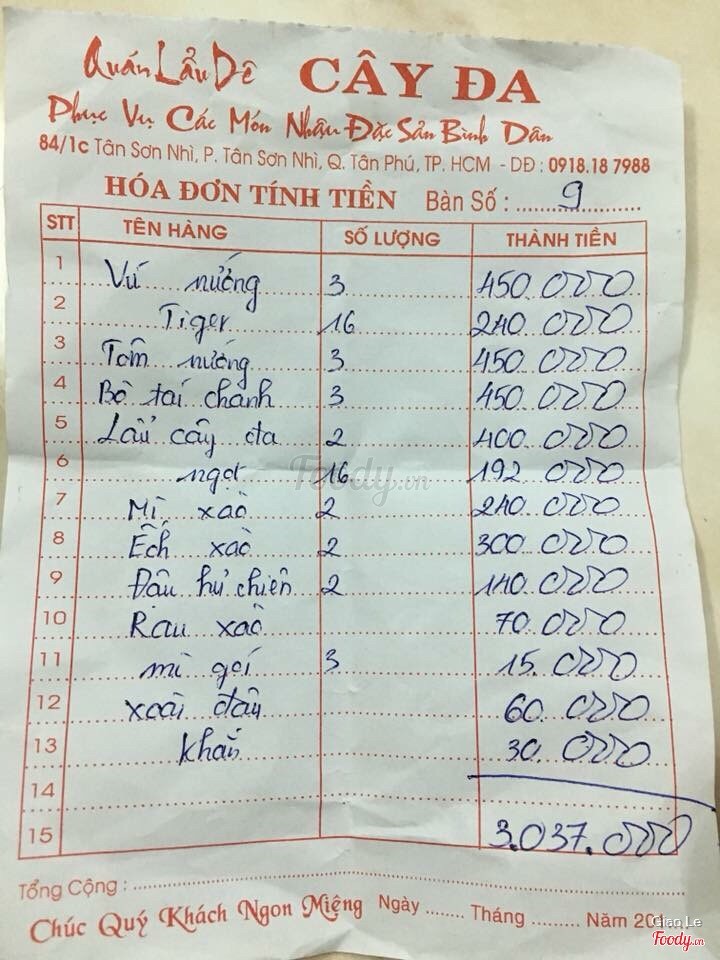 Quán Lẩu Dê CÂY ĐA
Phục Vụ Các Món Nhậu Đặc Sản Bình Dân
84/1c Tân Sơn Nhì, P. Tân Sơn Nhì, Q. Tân Phú, TP. HCM - DĐ : 0918.18 7988
HÓA ĐƠN TÍNH TIỀN Bàn Số : 9
STT TÊN HÀNG SỐ LƯỢNG THÀNH TIỀN
1 Vú nướng 3 450.000
2 Tiger 16 240.000
3 Tôm nướng 3 450.000
4 Bò tái chanh 3 450.000
5 Lẩu cây đa 2 400.000
6 ngọt 16 192.000
7 Mì xào 2 240.000
8 Ếch xào 2 300.000
9 Đậu hủ chiên 2 140.000
10 Rau xào 70.000
11 mì gói 3 15.000
12 xoài đậu 60.000
13 khăn 30.000
14
15 3.037.000
Tổng Cộng :
Chúc Quý Khách Ngon Miệng Ngày ....... Tháng ......... Năm 201
Giao Le
Foody.vn
Foody.vn